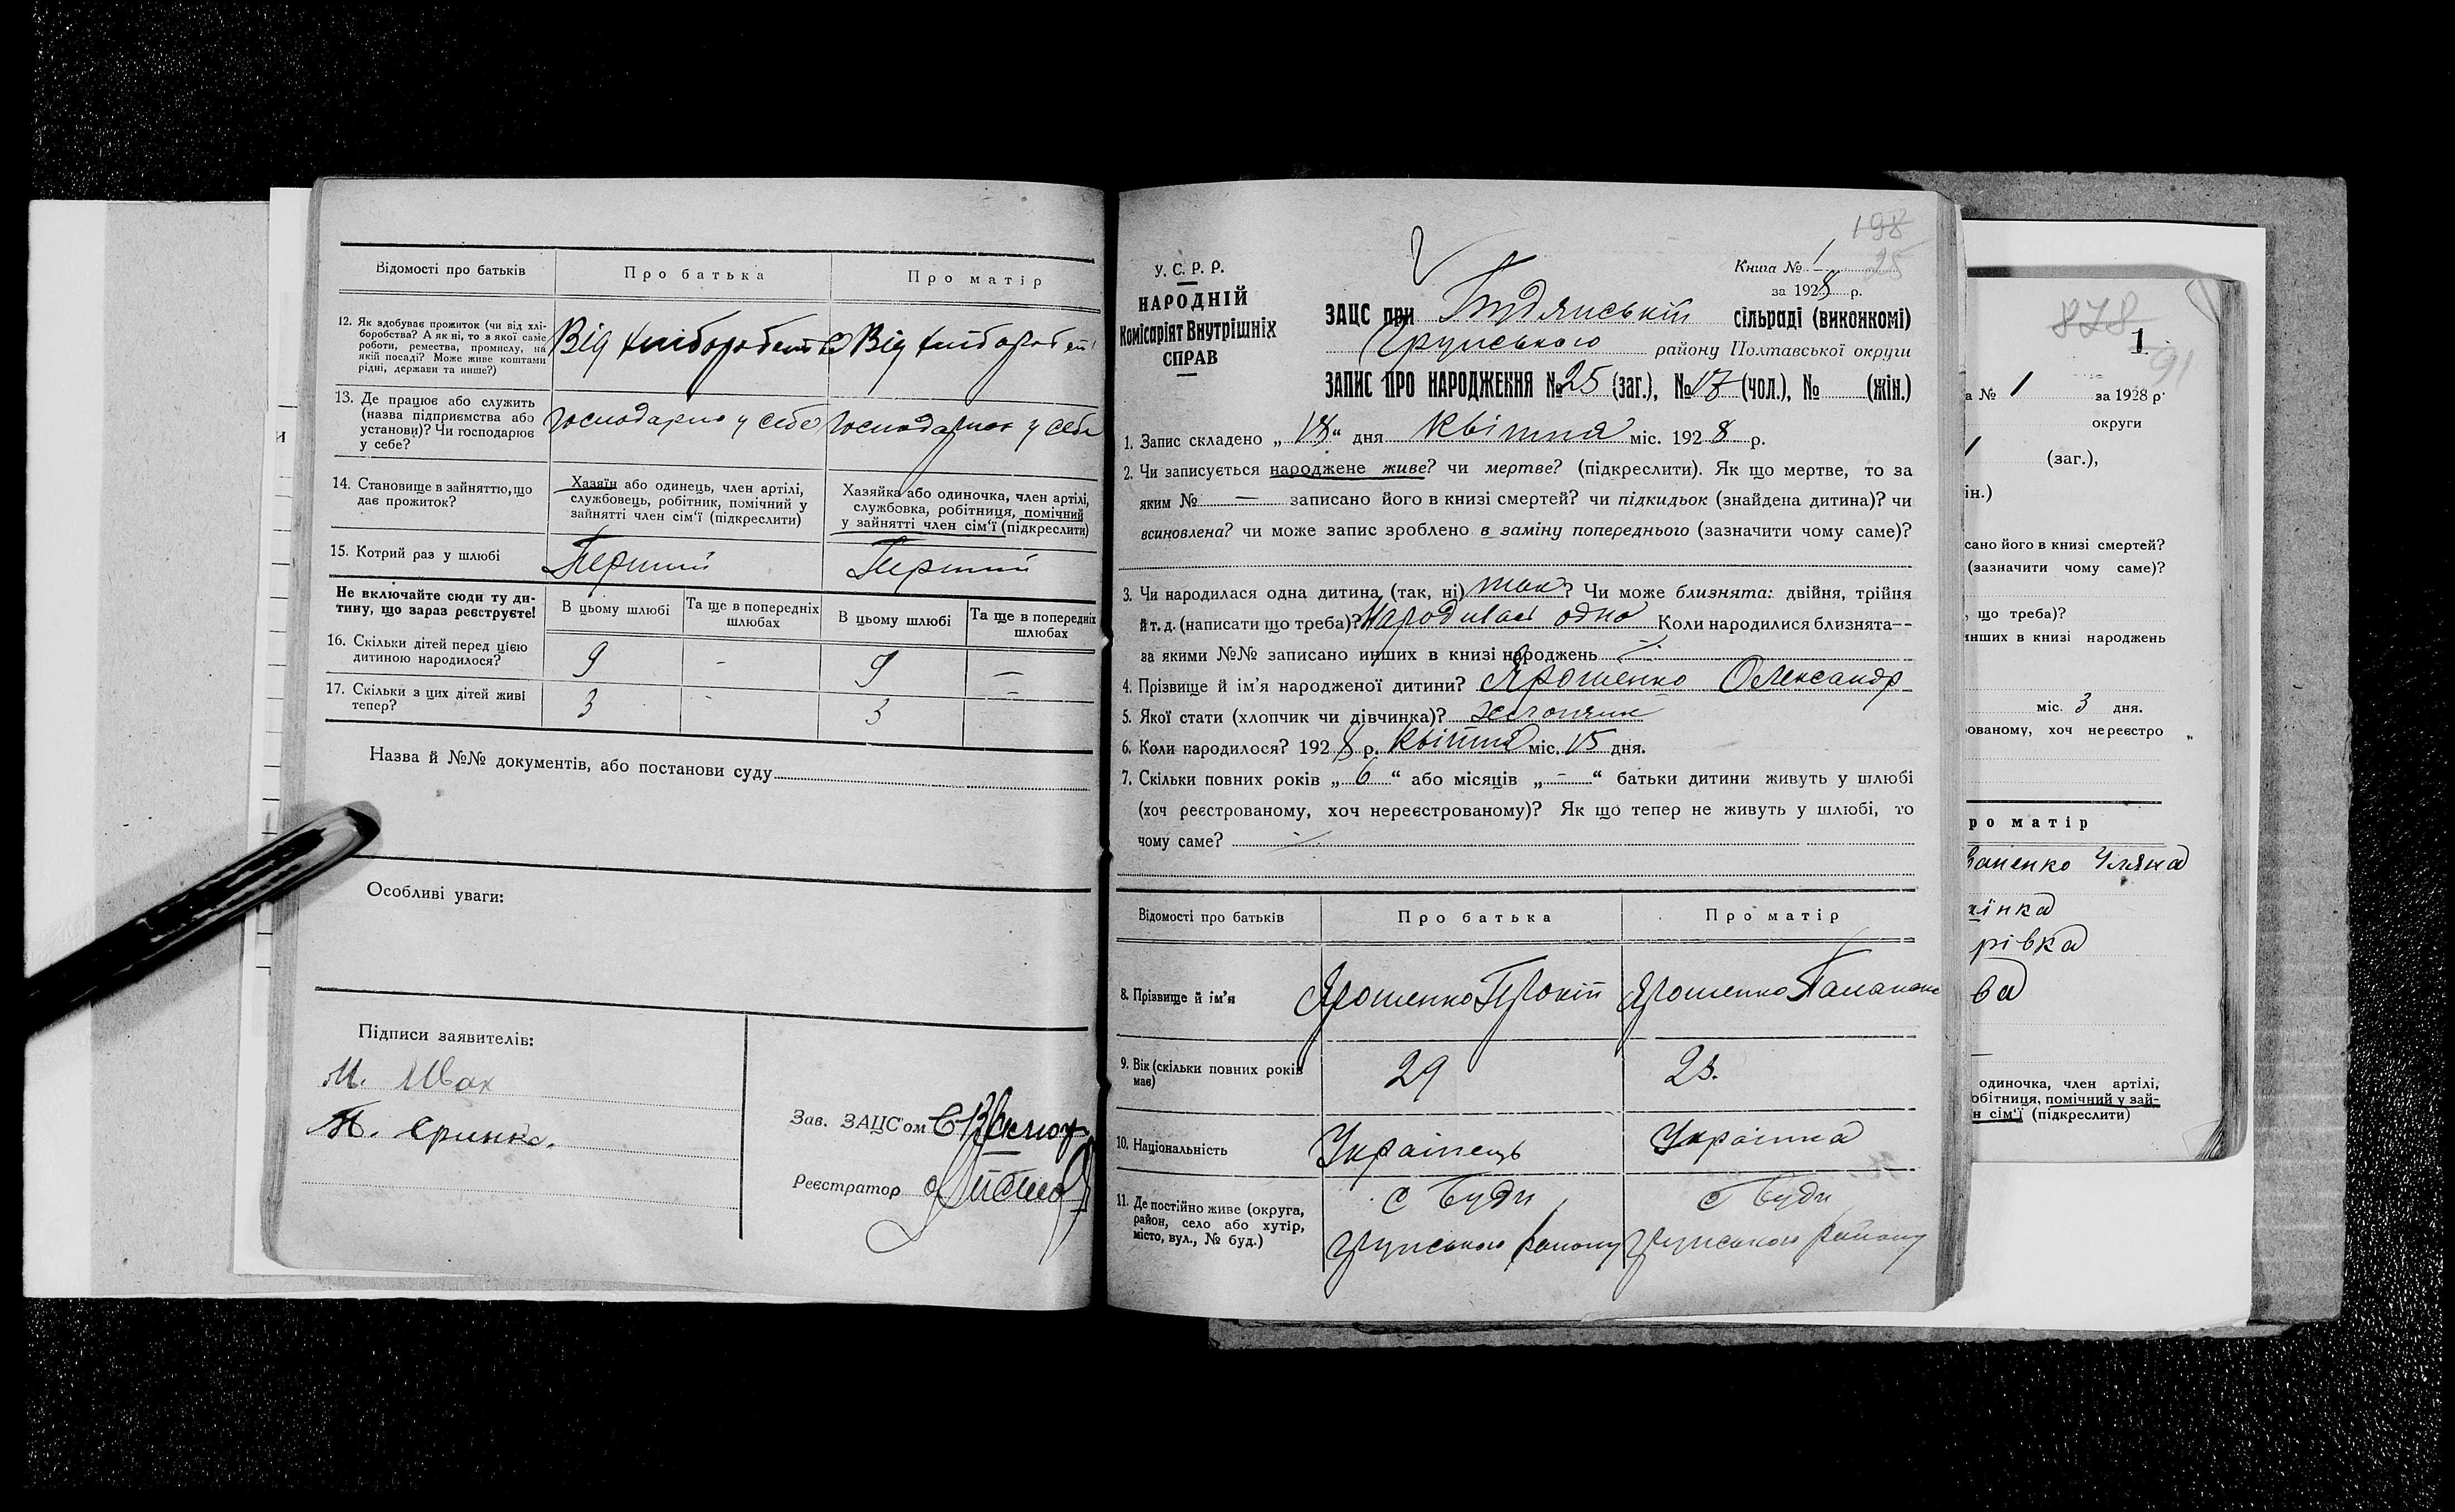 Відомості про батьків
Про батька
Про матір
12. Як здобуває прожиток (чи від хлі-
боробства? А як ні, то з якої саме
роботи, ремества, промислу, на
якій посаді? Може живе коштами
рідні, держави та инше?)
Від хліборобства
Від хлібороб
13. Де працює або служить
(назва підприємства або
установи)? Чи господарює
у себе?
Господарює у себе
Господарює у себе
14. Становище в зайняттю, що
дає прожиток?
Хазяїн або одинець, член артілі,
службовець, робітник, помічний у
зайнятті член сім'ї (підкреслити)
Хазяйка або одиночка, член артілі,
службовка, робітниця, помічний
у зайнятті член сім'ї (підкреслити)
15. Котрий раз у шлюбі
Перший
Перший
Не включайте сюди ту ди-
тину, що зараз реєструєте!
В цьому шлюбі
Та ще в попередніх
шлюбах
В цьому шлюбі
Та ще в попередніх
шлюбах
16. Скільки дітей перед цією
дитиною народилося?
9 - 9 —
17. Скільки з цих дітей живі
тепер?
3 - 3 —
Назва й №№ документів, або постанови суду
Особливі уваги:
Підписи заявителів:
М.
Зав. ЗАЦС'ом
Реєстратор
198
25
У. С. Р. Р.
НАРОДНІЙ
Комісаріят Внутрішніх
СПРАВ
Книга № 1
за 1928 р.
ЗАЦС при сільраді (виконкомі)
Грунського району Полтавської округи
ЗАПИС ПРО НАРОДЖЕННЯ № 25 (заг.), № 17 (чол.), № (жін.)
1. Запис складено „ 18 “ дня квітня міс. 1928 р.
2. Чи записується народжене живе? чи мертве? (підкреслити). Як що мертве, то за
яким № — записано його в книзі смертей? чи підкидьок (знайдена дитина)? чи
всиновлена? чи може запис зроблено в заміну попереднього (зазначити чому саме)?
3. Чи народилася одна дитина (так, ні) так? Чи може близнята: двійня, трійня
й т. д. (написати що треба)? Народилась одно Коли народилися близнята--
за якими №№ записано инших в книзі народжень
4. Прізвище й ім'я народженої дитини? Ярошенко Олександр
5. Якої стати (хлопчик чи дівчинка)? хлопчик
6. Коли народилося? 1928 р. квітня міс. 15 дня.
7. Скільки повних років „ 6 “ або місяців „ - “ батьки дитини живуть у шлюбі
(хоч реєстрованому, хоч нереєстрованому)? Як що тепер не живуть у шлюбі, то
чому саме?
Відомості про батьків
Про батька
Про матір
8. Прізвище й ім'я
Ярошенко Прокіп
Ярошенко
9. Вік (скільки повних років
має)
29
23.
10. Національність
Українець
Українка
11. Де постійно живе (округа,
район, село або хутір,
місто, вул., № буд.)
с Буди,
Грунського району
с Буди,
Грунського району
878
1
91
а № 1 за 1928 р.
округи
(заг.),
ін.)
сано його в книзі смертей?
(зазначити чому саме)?
, що треба)?
инших в книзі народжень
міс. 3 дня.
ованому, хоч нереєстро
ро матір
Уляна
їнка
рівка
ва
одиночка, член артілі,
обітниця, помічний у зай-
н сім'ї (підкреслити)